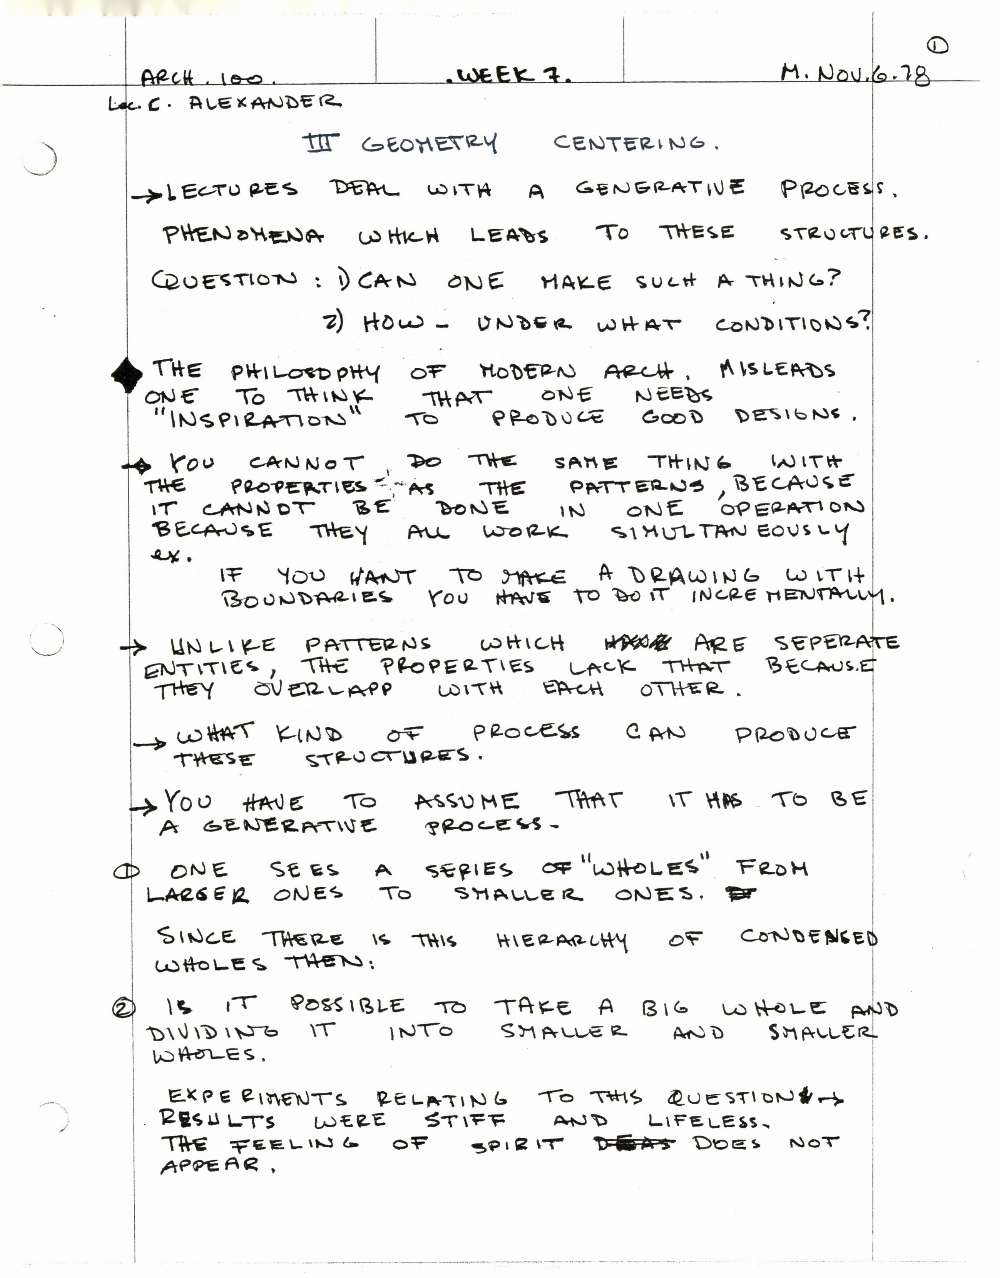 ①
ARCH. 100. .WEEK 7. M. NOV. 6. 78
Lec. C. ALEXANDER
III GEOMETRY CENTERING.
→ LECTURES DEAL WITH A GENERATIVE PROCESS.
PHENOMENA WHICH LEADS TO THESE STRUCTURES.
QUESTION : 1) CAN ONE MAKE SUCH A THING?
2) HOW - UNDER WHAT CONDITIONS?
◆ THE PHILOSOPHY OF MODERN ARCH. MISLEADS
ONE TO THINK THAT ONE NEEDS
"INSPIRATION" TO PRODUCE GOOD DESIGNS.
→ YOU CANNOT DO THE SAME THING WITH
THE PROPERTIES AS THE PATTERNS, BECAUSE
IT CANNOT BE DONE IN ONE OPERATION
BECAUSE THEY ALL WORK SIMULTANEOUSLY
ex.
IF YOU WANT TO MAKE A DRAWING WITH
BOUNDARIES YOU HAVE TO DO IT INCREMENTALLY.
→ UNLIKE PATTERNS WHICH ARE SEPERATE
ENTITIES, THE PROPERTIES LACK THAT BECAUSE
THEY OVERLAPP WITH EACH OTHER.
→ WHAT KIND OF PROCESS CAN PRODUCE
THESE STRUCTURES.
→ YOU HAVE TO ASSUME THAT IT HAS TO BE
A GENERATIVE PROCESS-
① ONE SEES A SERIES OF "WHOLES" FROM
LARGER ONES TO SMALLER ONES.
SINCE THERE IS THIS HIERARCHY OF CONDENSED
WHOLES THEN:
② IS IT POSSIBLE TO TAKE A BIG WHOLE AND
DIVIDING IT INTO SMALLER AND SMALLER
WHOLES.
EXPERIMENTS RELATING TO THIS QUESTION →
RESULTS WERE STIFF AND LIFELESS.
THE FEELING OF SPIRIT DOES NOT
APPEAR.